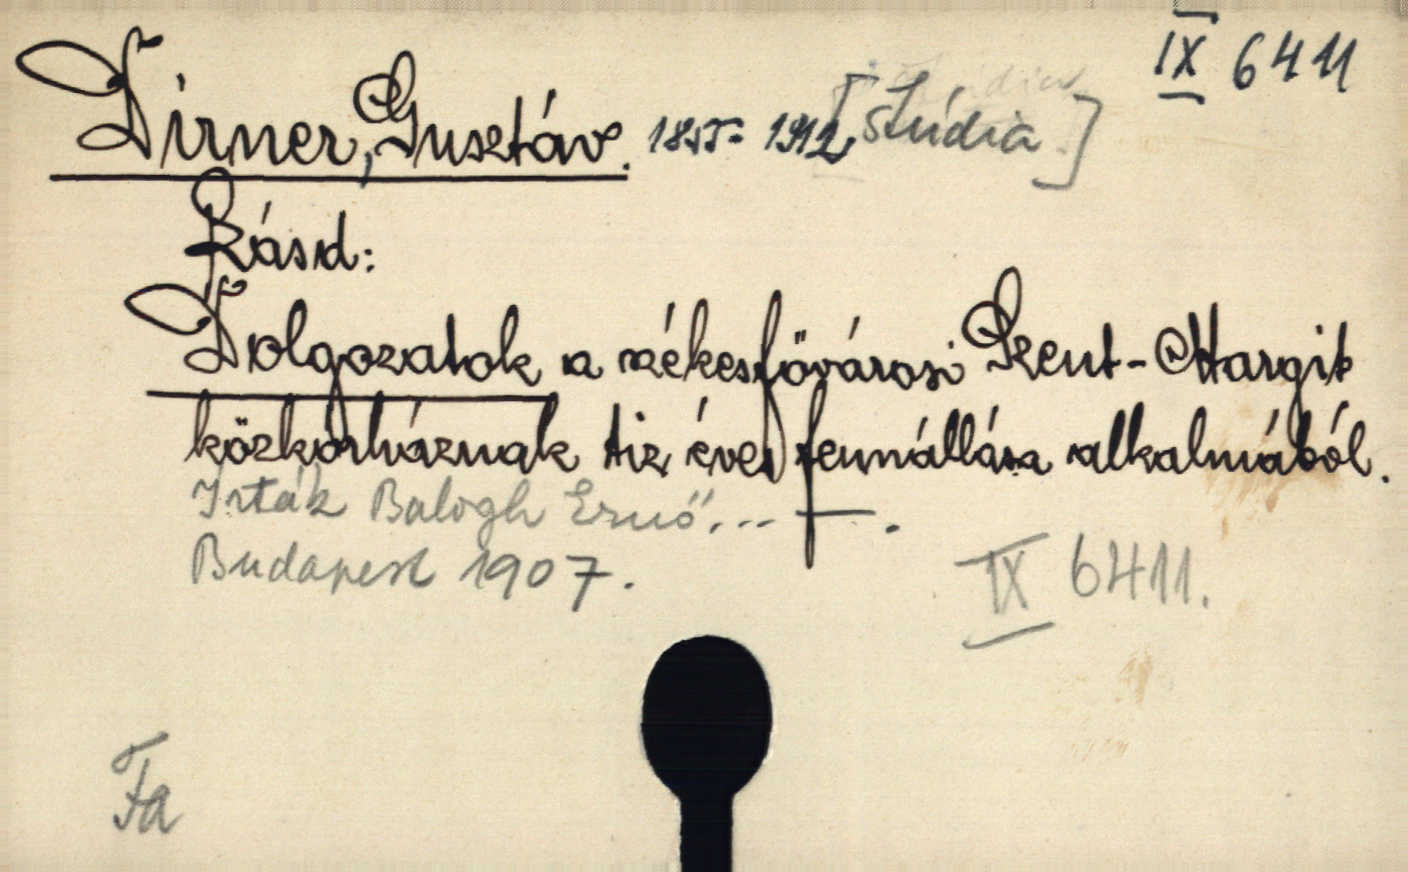 IX 6411
Dirner, Gusztáv. 1855-1912 [Stúdia.]
Lásd:
Dolgozatok a székesfővárosi Szent-Margit
közkórháznak tiz éves fennállása alkalmából.
Irták Balogh Ernő... — .
Budapest 1907.
IX 6411.
Fa